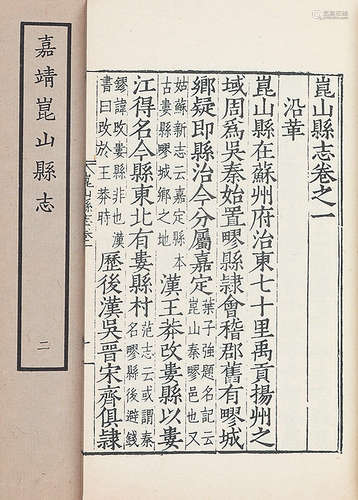 嘉靖崑山縣志
二
崑山縣志卷之一
沿革
崑山縣在蘇州府治東七十里禹貢揚州之
域周爲吳秦始置疁縣隷會稽郡舊有疁城
鄉疑即縣治今分屬嘉定
葉子強題名記云
崑山秦疁邑也又
姑蘇新志云嘉定縣本
古婁縣疁城鄉之地
漢王莽改婁縣以婁
江得名今縣東北有婁縣村
范志云或謂秦
名疁縣後避錢
鏐諱改婁縣非也漢
書曰改於王莽時
歷後漢吳晉宋齊俱隷